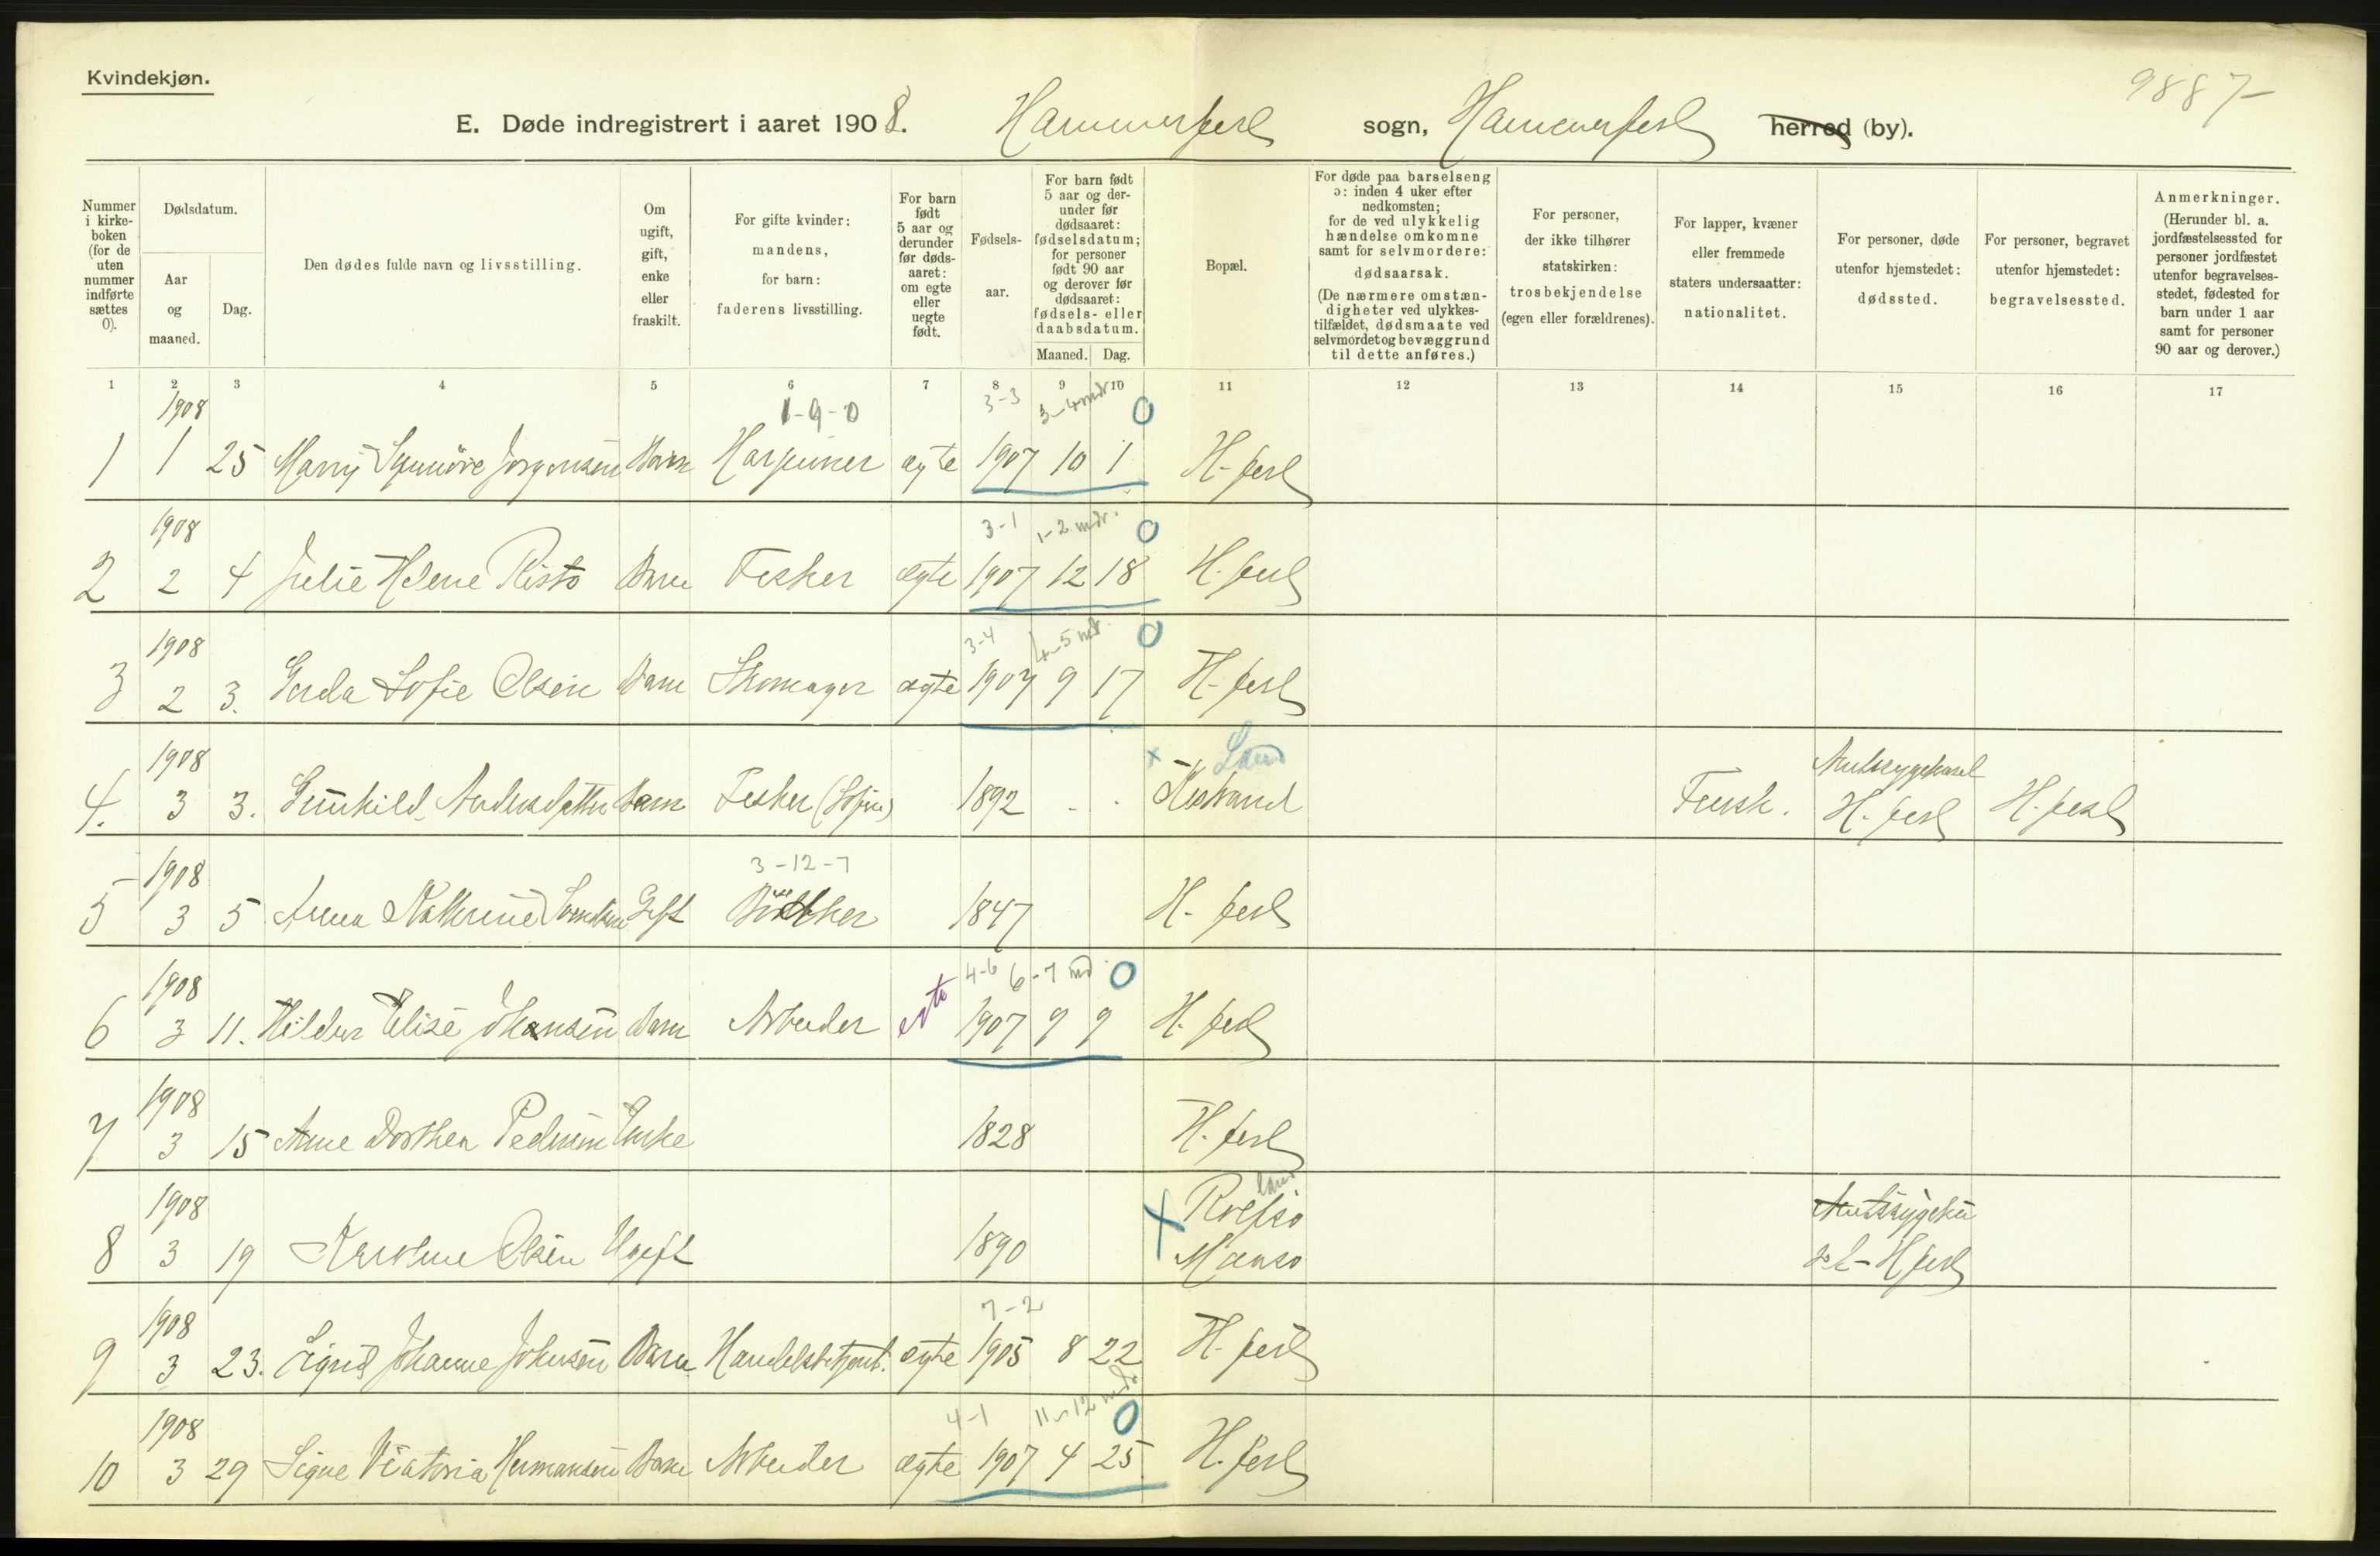 Kvindekjøn.
9887-
E. Døde indregistrert i aaret 1908. Hammerfest sogn, Hammerfest herred (by).
Nummer i kirke-boken (for de uten nummer indførte sættes 0).
Dødsdatum.
Aar og maaned.
Dag.
Den dødes fulde navn og livsstilling.
Om ugift, gift, enke eller fraskilt.
For gifte kvinder: mandens, for barn: faderens livsstilling.
For barn født 5 aar og derunder før døds-aaret: om egte eller uegte født.
Fødsels-aar.
For barn født 5 aar og der-under før dødsaaret: fødselsdatum; for personer født 90 aar og derover før dødsaaret: fødsels- eller daabsdatum.
Maaned. Dag.
Bopæl.
For døde paa barselseng ɔ: inden 4 uker efter nedkomsten; for de ved ulykkelig hændelse omkomne samt for selvmordere: dødsaarsak. (De nærmere omstæn-digheter ved ulykkes-tilfældet, dødsmaate ved selvmordet og bevæggrund til dette anføres.)
For personer, der ikke tilhører statskirken: trosbekjendelse (egen eller forældrenes).
For lapper, kvæner eller fremmede staters undersaatter: nationalitet.
For personer, døde utenfor hjemstedet: dødssted.
For personer, begravet utenfor hjemstedet: begravelsessted.
Anmerkninger. (Herunder bl. a. jordfæstelsessted for personer jordfæstet utenfor begravelses-stedet, fødested for barn under 1 aar samt for personer 90 aar og derover.)
1 2 3 4 5 6 7 8 9 10 11 12 13 14 15 16 17
1908 1-9-0 3-3 3-4 mdr 0
1 1 25 Marry Synnöve Jørgensen Barn Harpuner ægte 1907 10 1 H-fest
1908 3-1 1-2 mdr. 0
2 2 4 Julie Helene Risto Barn Fisker ægte 1907 12 18 H.fest
1908 3-4 4-5 mdr. 0
3 2 3. Gerda Sofie Olsen Barn Skomager ægte 1907 9 17 H-fest
1908 x Land Amtssygehuset
4. 3 3. Gunhild Andersdatter Barn Fisker 1892 - - Kistrand Finsk. H.fest H.fest
1908 3-12-7
5 3 5 Anna Kathrine Gift Bødker 1847 H-fest
1908 4-6 6-7 md. 0
6 3 11. Hildur Elise Johansen Barn Arbeider egte 1907 9 9 H.fest
1908
7 3 15 Anne Dorthea Pedersen Enke 1828 H.fest
1908 x Rolfsø land
8 3 19 Karoline Olsen Ugift 1890 Måsø H fest
1908 7-2
9 3 23. Sigrid Johanne Johnsen Barn Handelsbetjent. ægte 1905 8 22 H.fest
1908 4-1 11-12 mdr 0
10 3 29 Signe Viktoria Hermansen Barn Arbeider ægte 1907 4 25 H.fest